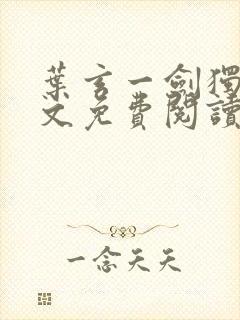 葉玄一劍獨
文免費閱讀
一念天天